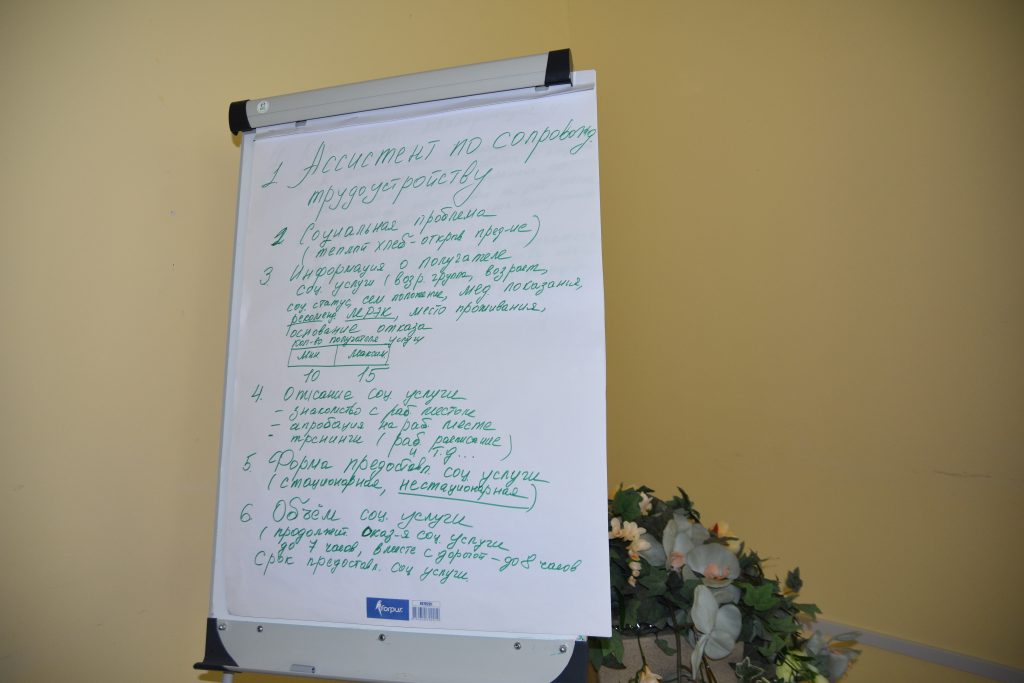 1. Ассистент по сопровожд.
трудоустройству
2 Социальная проблема
(теплый хлеб - открыв пред-ие)
3 Информация о получателе
соц услуги (возр. группа, возраст,
соц. статус, сем положение, мед показания,
рекоменд МРЭК, место проживания,
основание отказа
кол-во получателе услуги
Мин Максим
10 15
4. Описание соц услуги
- знакомство с раб местом
- апробация на раб. месте
- тренинги (раб. расписание)
и т.д...
5. Форма предоставл. соц услуги
(стационарная, нестационарная)
6. Объём соц. услуги
(продолжит. оказ-я соц услуги
до 7 часов, вместе с дорогой - до 8 часов
Срок предоставл. соц услуги.
forpus